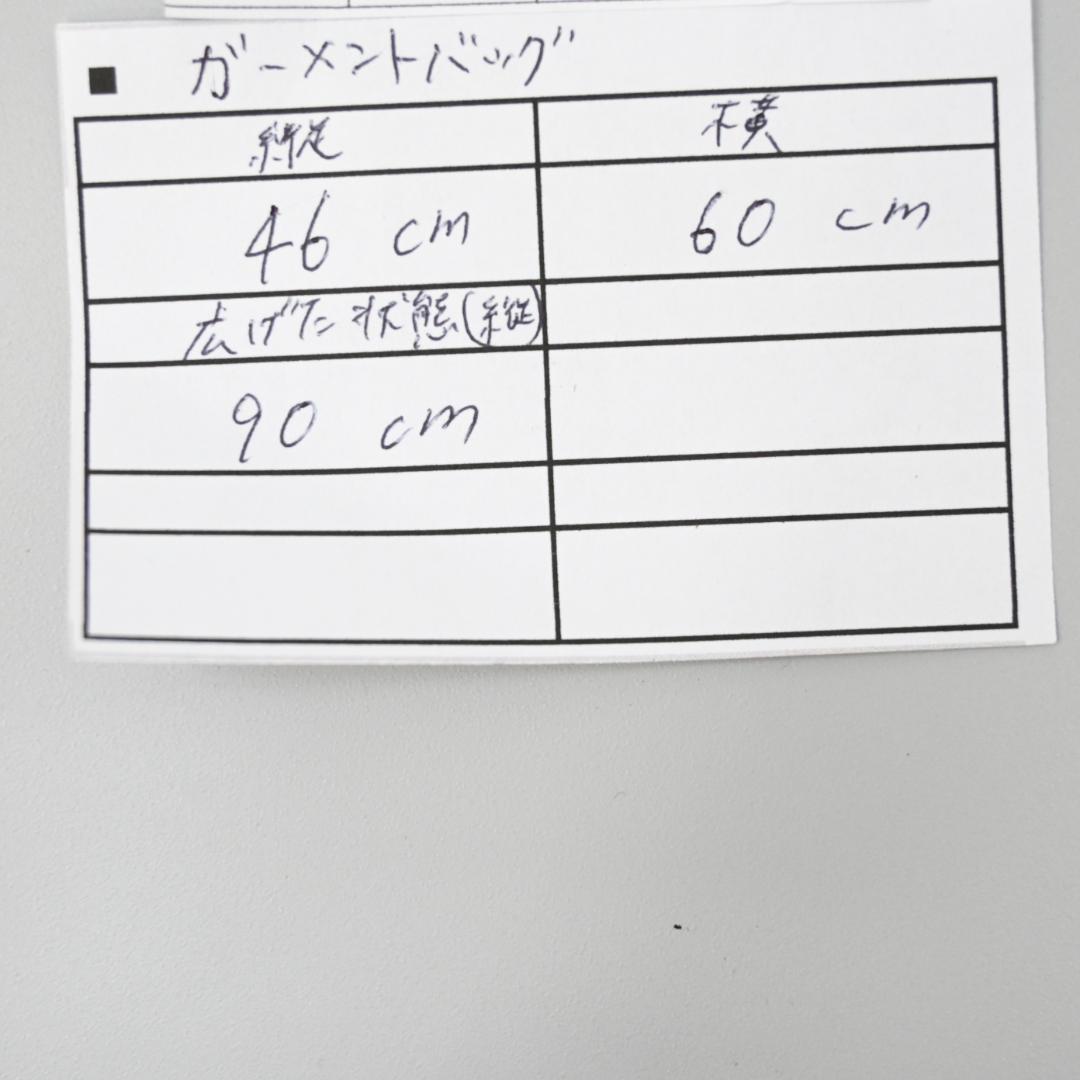 ■ ガーメントバッグ
縦 横
46 cm 60 cm
広げた状態(縦)
90 cm